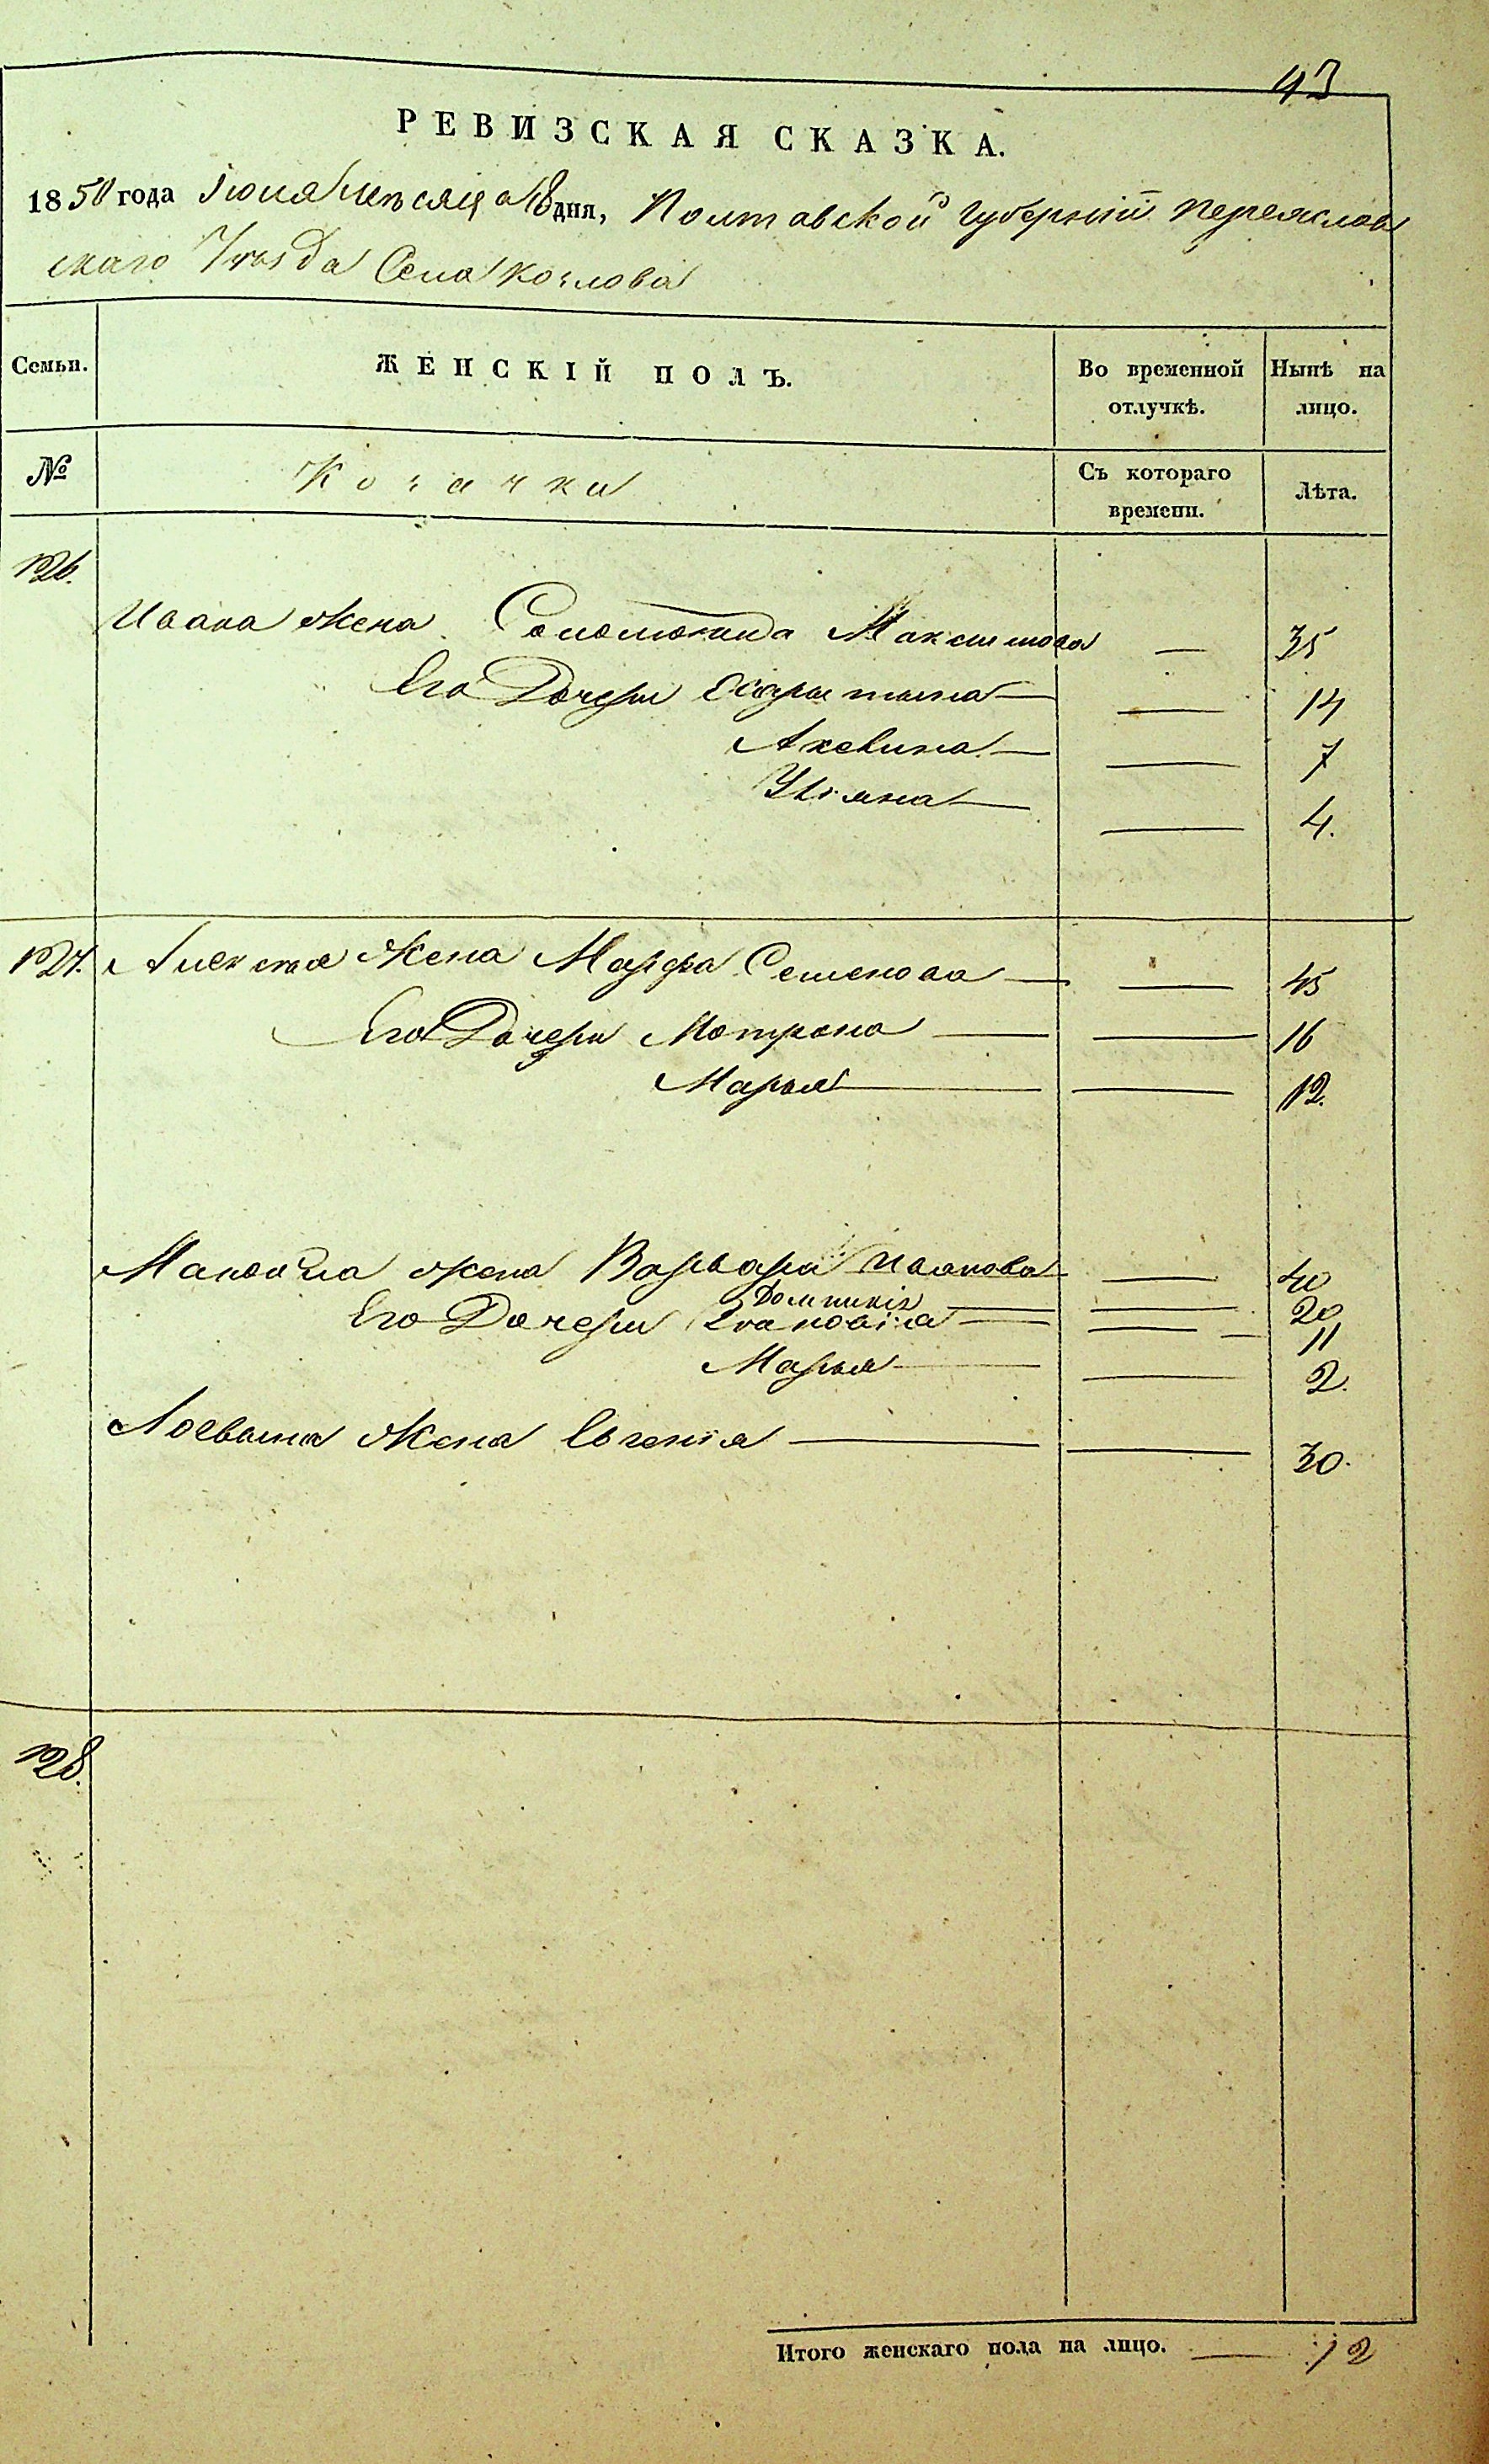 43
РЕВИЗСКАЯ СКАЗКА.
1850 года Іюня мѣсяца 18 дня, Полтавской Губерніи Переяслав
скаго Уѣзда Села Козлова
Семьи. ЖЕНСКІЙ ПОЛЪ. Во временной отлучкѣ. Нынѣ на лицо.
№ Козачки Съ котораго времени. Лѣта.
126.
Ивана жена Соломонида Максимова — 35
Его Дочери — 14
Акелина — — 7
Ульяна — — 4.
127. Алексѣя Жена Марфа Семенова — — 45
Его Дочери Мотрона — — 16
Марья — — 12.
Мануйла жена Варвара Иванова — — 40
Домникія — — 20
Его Дочери — — 11
Марья — — 2.
Жена Евгенія — — 30.
128.
Итого женскаго пола на лицо. — 12